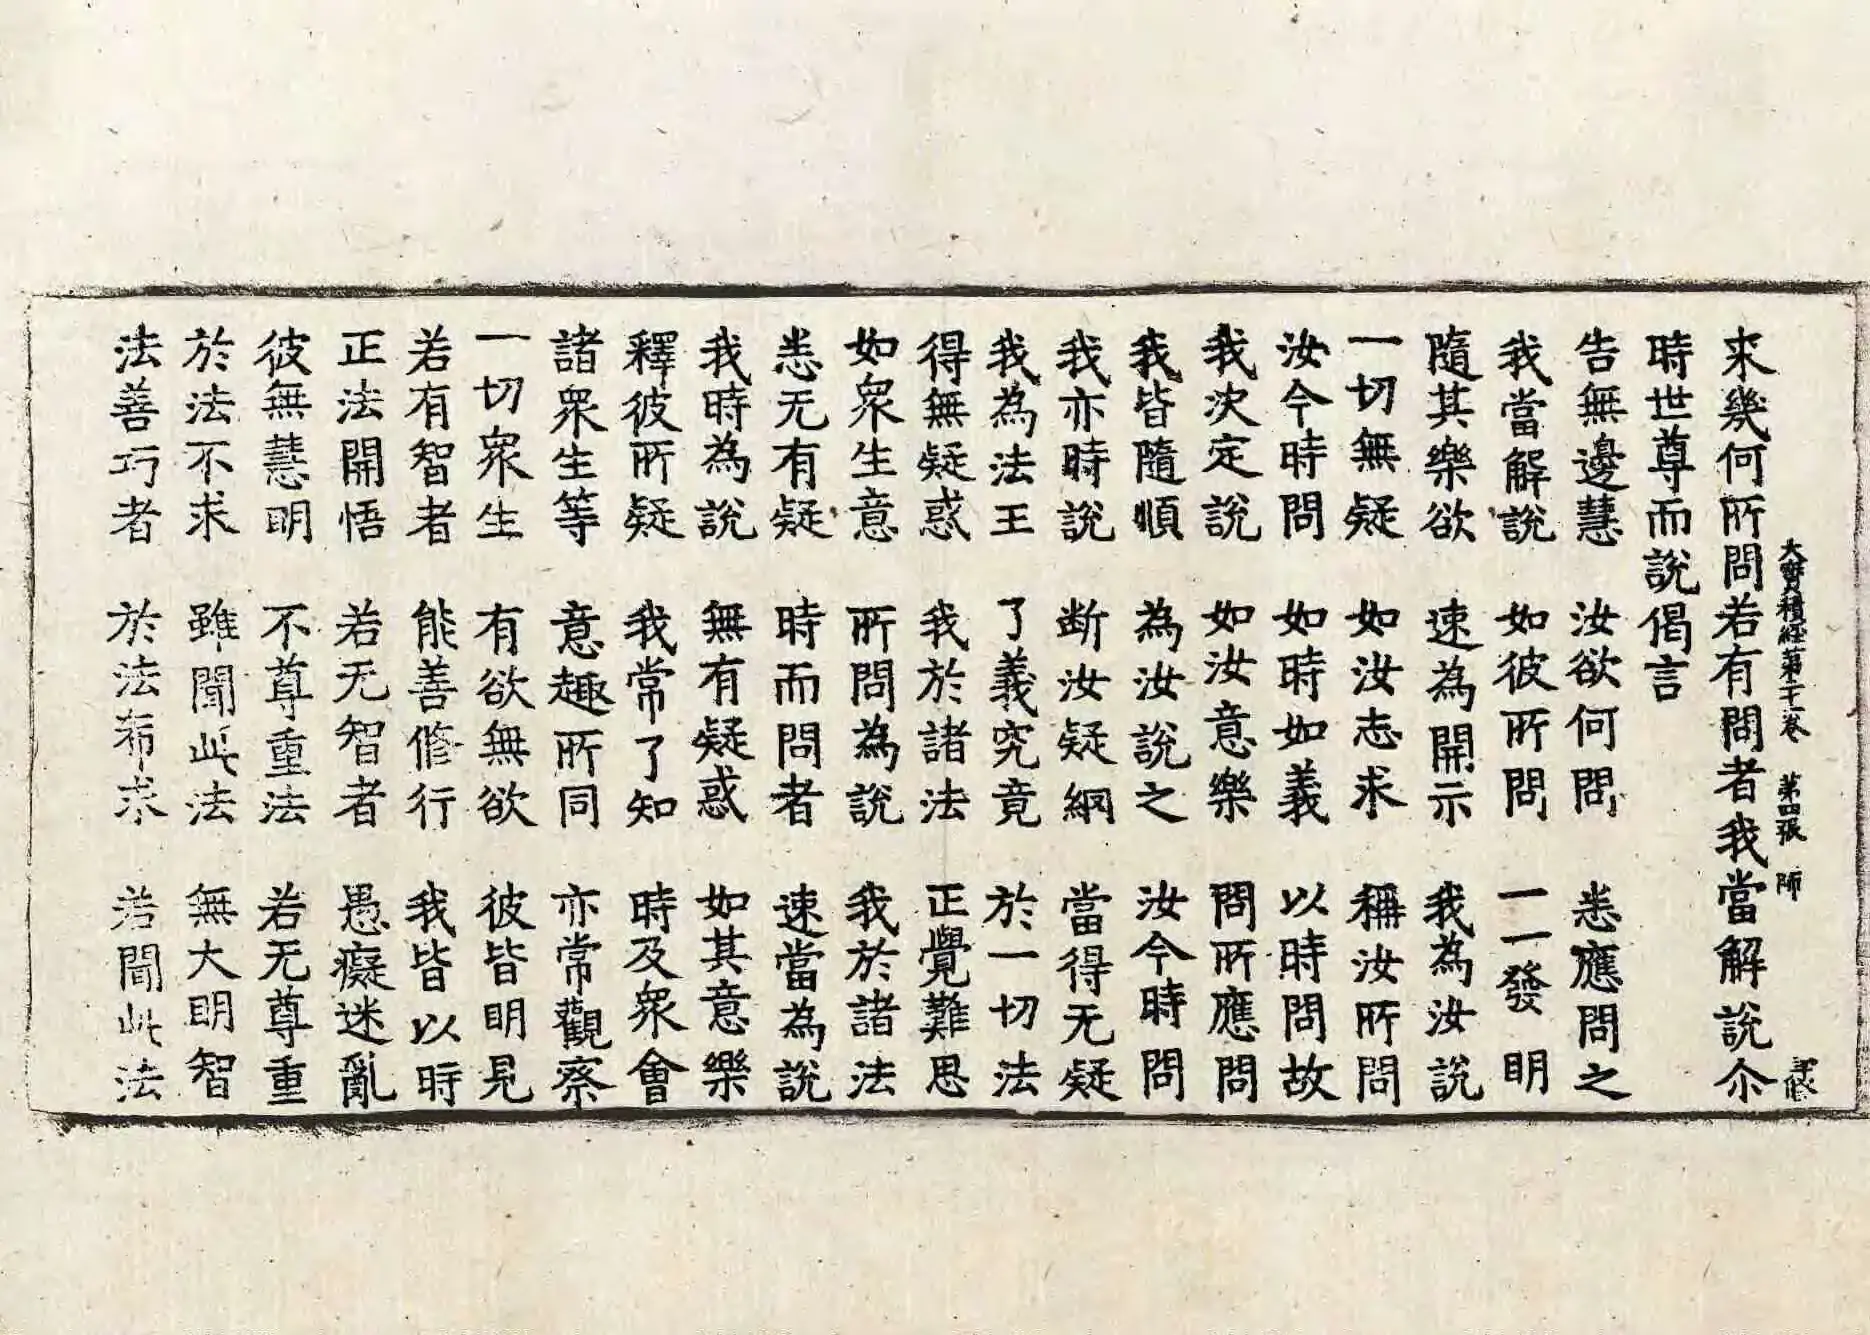 大寶積經第二十二卷　第四張　師
求幾何所問若有問者我當解說尒
時世尊而說偈言
告無邊慧　汝欲何問　悉應問之
我當解說　如彼所問　一一發明
隨其樂欲　速為開示　我為汝說
一切無疑　如汝志求　稱汝所問
汝今時問　如時如義　以時問故
我決定說　如汝意樂　問所應問
我皆隨順　為汝說之　汝今時問
我亦時說　断汝疑網　當得无疑
我為法王　了義究竟　於一切法
得無疑惑　我於諸法　正覺難思
如衆生意　所問為說　我於諸法
悉无有疑　時而問者　速當為說
我時為說　無有疑惑　如其意樂
釋彼所疑　我常了知　時及衆會
諸衆生等　意趣所同　亦常觀察
一切衆生　有欲無欲　彼皆明見
若有智者　能善修行　我皆以時
正法開悟　若无智者　愚癡迷亂
彼無慧明　不尊重法　若无尊重
於法不求　雖聞此法　無大明智
法善巧者　於法希求　若聞此法